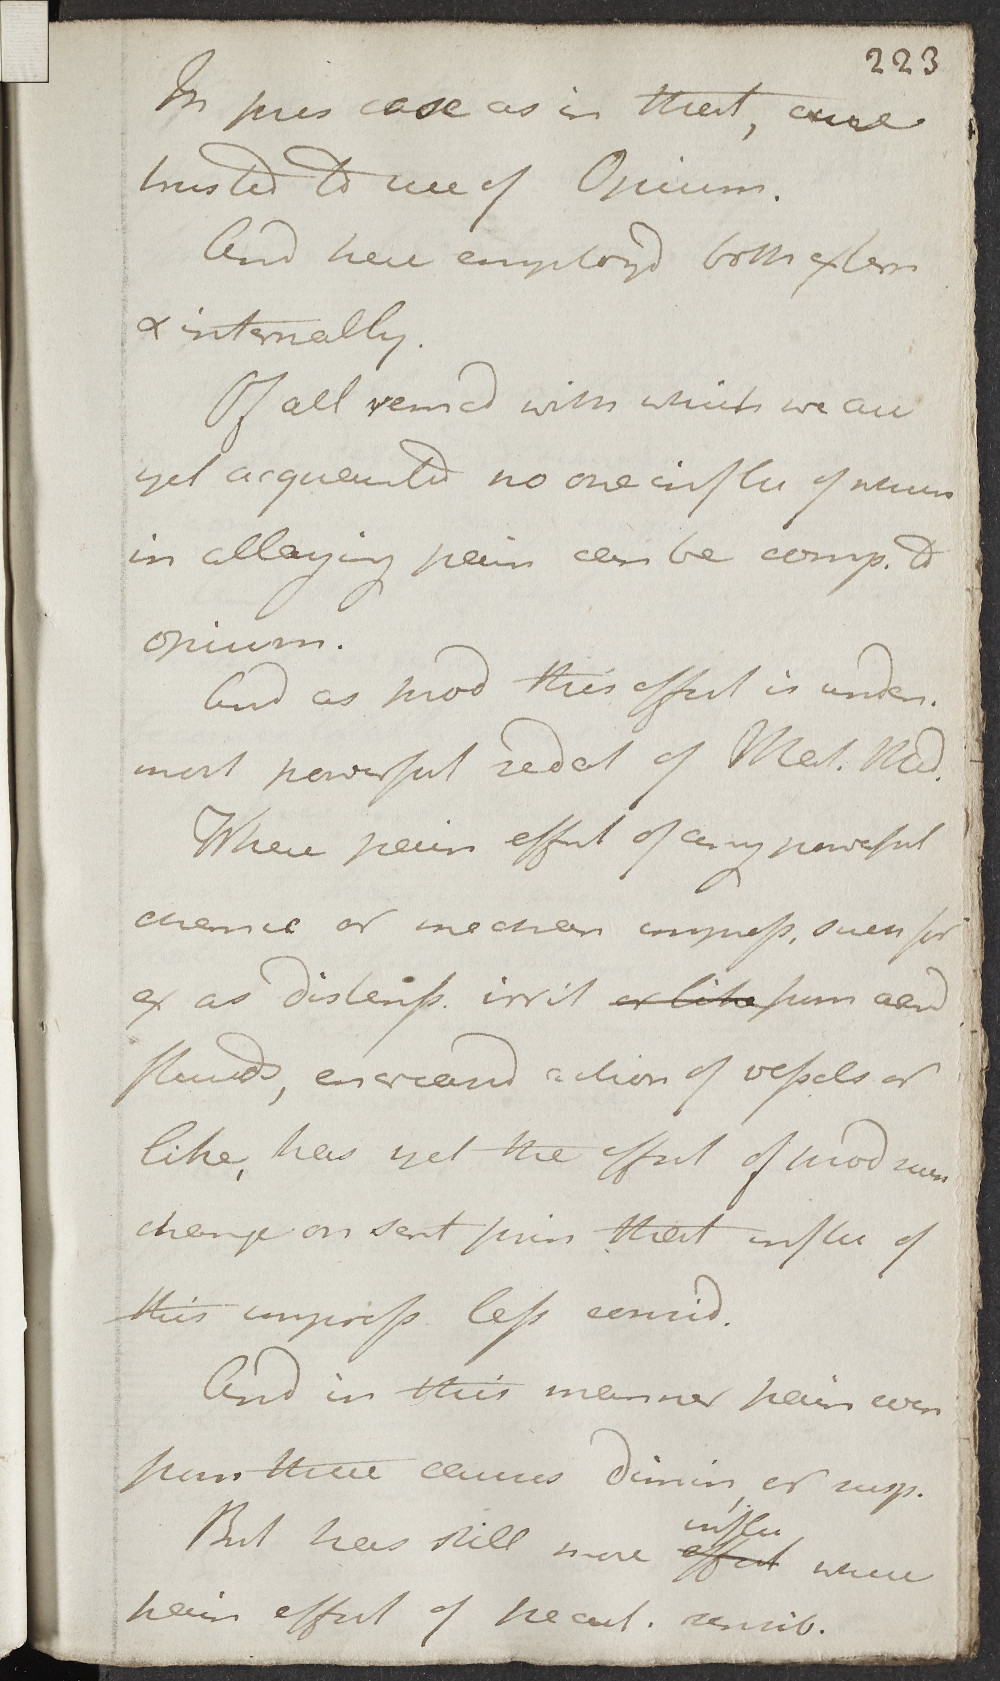 223
In pres case as in that, cure
trusted to use of Opium.
And here employd both extern
& internally.
Of all remed with which we are
yet acquainted no one influ of whch
in allaying pain can be comp. to
opium.
And as prod this effect is under.
most powerful sedat of Mat. Med.
Where pain effect of any powerful
chemic or mechan impress. such for
ex as distenss. irrit or like from acrd
fluids, encreasd action of vessels or
like, has yet the effect of prod such
change on sent prin that influ of
this impress less consid.
And in this manner pain even
from these causes dimin, or susp.
But has still more effect influ where
pain effect of pecul. sensib.